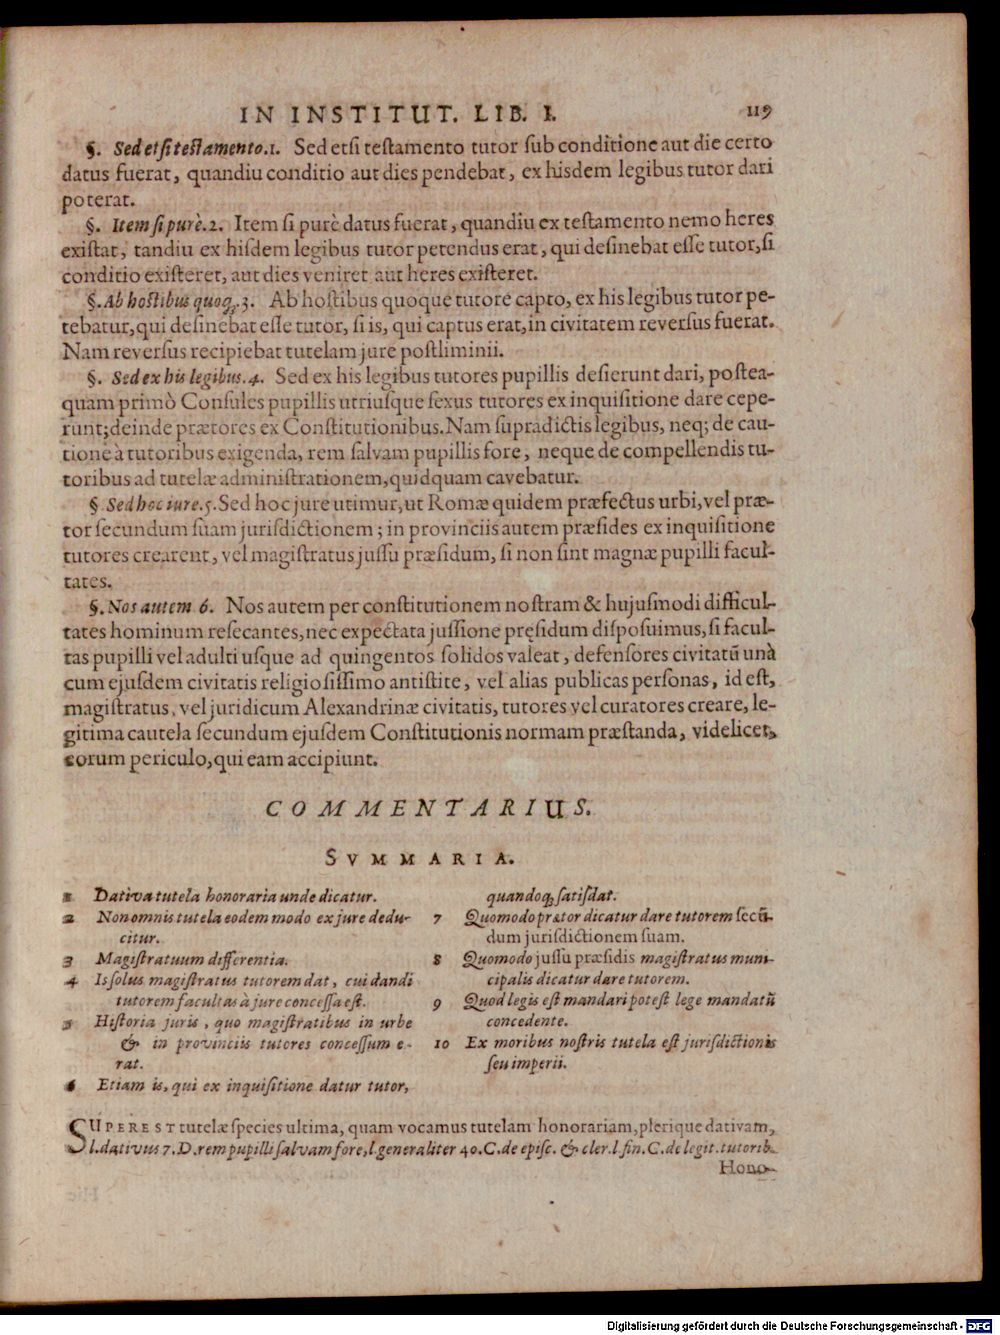 IN INSTITUT. LIB. I. 119
§. Sed et si testamento. 1. Sed etsi testamento tutor sub conditione aut die certo
datus fuerat, quandiu conditio aut dies pendebat, ex hisdem legibus tutor dari
poterat.
§. Item si purè. 2. Item si purè datus fuerat, quandiu ex testamento nemo heres
existat, tandiu ex hisdem legibus tutor petendus erat, qui desinebat esse tutor, si
conditio existeret, aut dies veniret aut heres existeret.
§. Ab hostibus quoq;. 3. Ab hostibus quoque tutore capto, ex his legibus tutor pe-
tebatur, qui desinebat esse tutor, si is, qui captus erat, in civitatem reversus fuerat.
Nam reversus recipiebat tutelam jure postliminii.
§. Sed ex his legibus. 4. Sed ex his legibus tutores pupillis desierunt dari, postea-
quam primò Consules pupillis utriusque sexus tutores ex inquisitione dare cepe-
runt; deinde prætores ex Constitutionibus. Nam supradictis legibus, neq; de cau-
tione à tutoribus exigenda, rem salvam pupillis fore, neque de compellendis tu-
toribus ad tutelæ administrationem, quidquam cavebatur.
§ Sed hoc iure. 5. Sed hoc jure utimur, ut Romæ quidem præfectus urbi, vel præ-
tor secundum suam jurisdictionem; in provinciis autem præsides ex inquisitione
tutores crearent, vel magistratus jussu præsidum, si non sint magnæ pupilli facul-
tates.
§. Nos autem 6. Nos autem per constitutionem nostram & hujusmodi difficul-
tates hominum resecantes, nec expectata jussione pręsidum disposuimus, si facul-
tas pupilli vel adulti usque ad quingentos solidos valeat, defensores civitatũ unà
cum ejusdem civitatis religiosissimo antistite, vel alias publicas personas, id est,
magistratus, vel juridicum Alexandrinæ civitatis, tutores vel curatores creare, le-
gitima cautela secundum ejusdem Constitutionis normam præstanda, videlicet,
eorum periculo, qui eam accipiunt.
COMMENTARIUS.
SVMMARIA.
1 Dativa tutela honoraria unde dicatur.
2 Non omnis tutela eodem modo ex jure dedu-
citur.
3 Magistratuum differentia.
4 Is solus magistratus tutorem dat, cui dandi
tutorem facultas à jure concessa est.
5 Historia juris, quo magistratibus in urbe
& in provinciis tutores concessum e-
rat.
6 Etiam is, qui ex inquisitione datur tutor,
quandoq; satisdat.
7 Quomodo prætor dicatur dare tutorem secũ-
dum jurisdictionem suam.
8 Quomodo jussu præsidis magistratus muni-
cipalis dicatur dare tutorem.
9 Quod legis est mandari potest lege mandatũ
concedente.
10 Ex moribus nostris tutela est jurisdictionis
seu imperii.
SUPEREST tutelæ species ultima, quam vocamus tutelam honorariam, plerique dativam,
l. dativus 7. D. rem pupilli salvam fore, l. generaliter 40. C. de episc. & cler. l. fin. C. de legit. tutorib.
Hono-
Digitalisierung gefördert durch die Deutsche Forschungsgemeinschaft - DFG